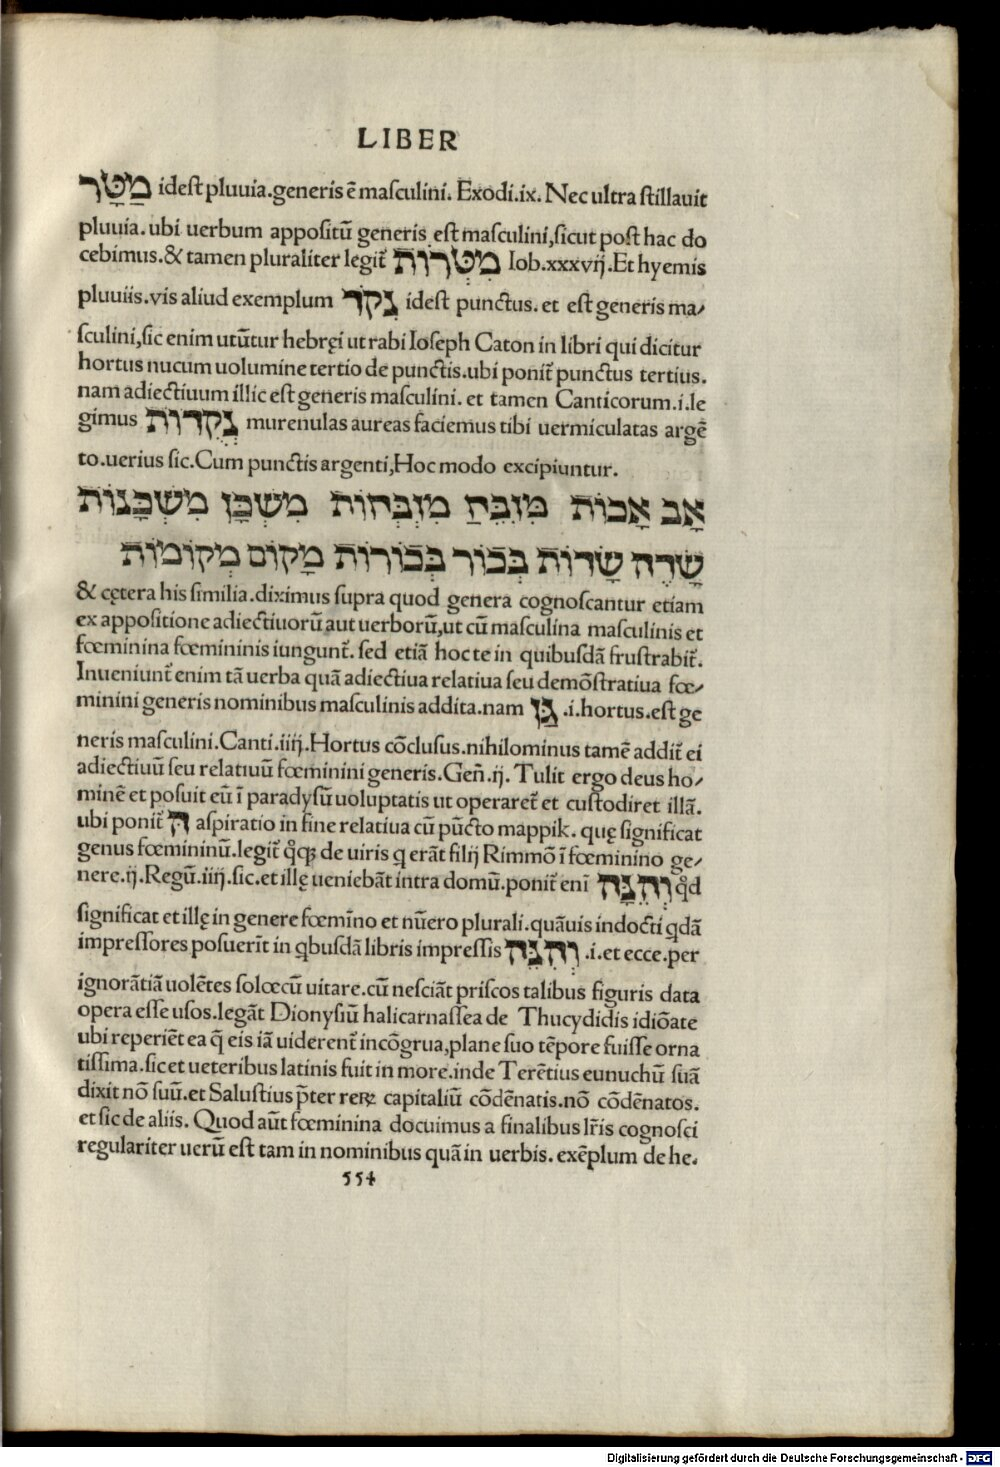 LIBER
מַטָּר idest pluuia.generis ē masculini. Exodi.ix. Nec ultra stillauit
pluuia. ubi uerbum appositū generis est masculini,sicut post hac do
cebimus.& tamen pluraliter legit̃ מִטְּרוֹת Iob.xxxvij.Et hyemis
pluuiis.vis aliud exemplum נְקֻד idest punctus. et est generis ma-
sculini,sic enim utūtur hebręi ut rabi Ioseph Caton in libri qui dicitur
hortus nucum uolumine tertio de punctis.ubi ponit̃ punctus tertius.
nam adiectiuum illic est generis masculini. et tamen Canticorum.i.le
gimus נְקֻדּוֹת murenulas aureas faciemus tibi uermiculatas argē
to.uerius sic.Cum punctis argenti,Hoc modo excipiuntur.
אָב אָבוֹת מִזְבֵּחַ מִזְבְּחוֹת מִשְׁכָּן מִשְׁכָּנוֹת
שָׂדֶה שָׂדוֹת בְּכוֹר בְּכוֹרוֹת מָקוֹם מְקוֹמוֹת
& cętera his similia.diximus supra quod genera cognoscantur etiam
ex appositione adiectiuorū aut uerborū,ut cū masculina masculinis et
fœminina fœmininis iungunt̃. sed etiā hoc te in quibusdā frustrabit̃.
Inueniunt̃ enim tā uerba quā adiectiua relatiua seu demōstratiua fœ-
minini generis nominibus masculinis addita.nam גַּן .i.hortus.est ge
neris masculini.Canti.iiij.Hortus cōclusus.nihilominus tamē addit̃ ei
adiectiuū seu relatiuū fœminini generis.Geñ.ij. Tulit ergo deus ho-
minē et posuit eū ī paradysū uoluptatis ut operaret̃ et custodiret illā.
ubi ponit̃ הּ aspiratio in fine relatiua cū pūcto mappik. quę significat
genus fœmininū.legit̃ qͦqꝫ de uiris q erāt filij Rimmō ī fœminino ge-
nere.ij.Regū.iiij.sic.et illę ueniebāt intra domū.ponit̃ eni וְהֵנָּה qͦd
significat et illę in genere fœmīno et nūero plurali.quāuis indocti qdā
impressores posuerīt in qbusdā libris impressis וְהִנֵּה .i.et ecce.per
ignorātiā uolētes solœcū uitare.cū nesciāt priscos talibus figuris data
opera esse usos.legāt Dionysiū halicarnassea de Thucydidis idiōate
ubi reperiēt ea q̄ eis iā uiderent̃ incōgrua,plane suo tēpore fuisse orna
tissima.sic et ueteribus latinis fuit in more.inde Terētius eunuchū suā
dixit nō suū.et Salustius p̄ter reꝝ capitaliū cōdēnatis.nō cōdēnatos.
et sic de aliis. Quod aūt fœminina docuimus a finalibus lr̃is cognosci
regulariter uerū est tam in nominibus quā in uerbis. exēplum de he.
554
Digitalisierung gefördert durch die Deutsche Forschungsgemeinschaft - DFG